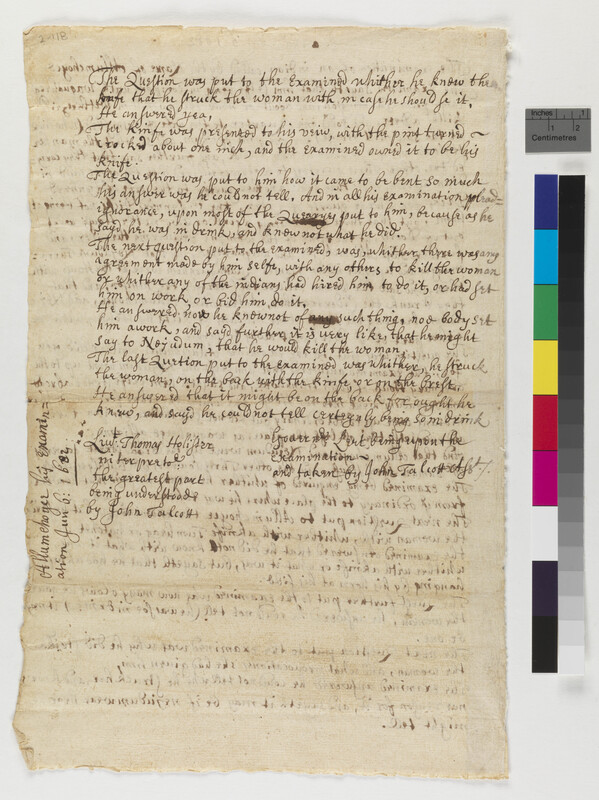 The Question was put to the Examined whither he knew the
knife that he struck the woman with in case he should se it,
He answered yea,
The knife was presented to his veiw, with the point turned
crocked about one inch, and the Examined owned it to be his
knife.
The Question was put to him how it came to be bent so much
his answer was he could not tell. And in all his examination plead=
ignorance, upon most of the Queryes put to him, because as he
sayd he was in drink, and knew not what he did.
The next question put to the examined, was, whither there was any
agreement made by him selfe, with any others, to kill the woman
or whither any of the indians had hired him to do it, or had set
him on work or bid him do it.
He answerred, now he knew not of any such thing, noe body set
him awork, and sayd further it is very like, that he might
say to Nesadum, that he would kill the woman,
The last Question put to the examined was whither, he struck
the woman, on the back with the knife, or on the brest,
He answered that it might be on the back for ought he
knew, and sayd he could not tell certeynly being so in drink
Liut Thomas Holister
interpreted
the greatest part
being understood
by John Talcott
Governr Leut being upon the
Examination
and taken by John Talcott Assist.
his Examin=
ation June 6: 168
Inches
1
2
Centimetres